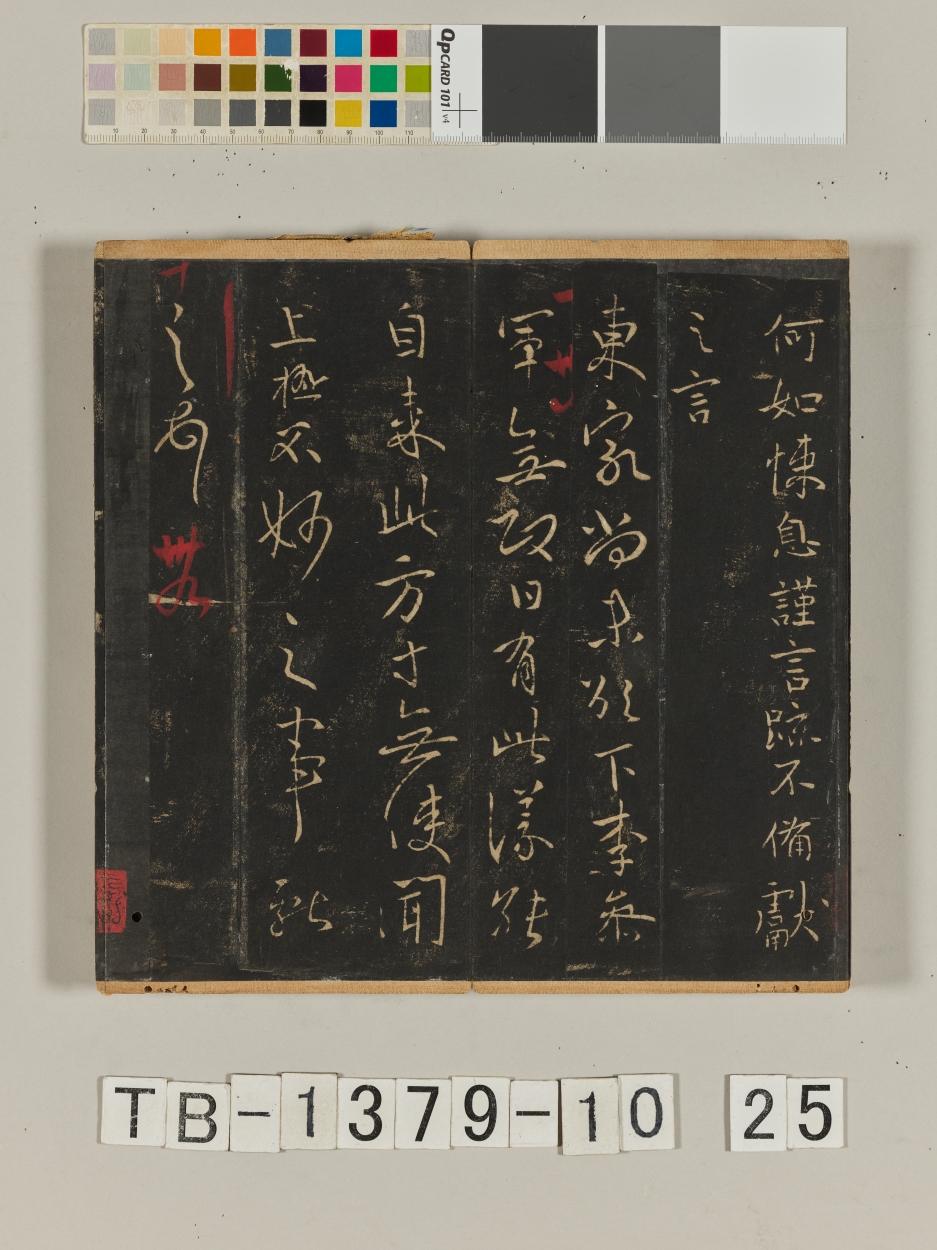 QpCARD 101 v4
10 20 30 40 50 60 70 80 90 100 110
何如悚息謹言疏不備獻
之言
東家尚未欲下李參
軍無改日有此
自來此方寸無使聞
上極不妙之事獻
之
TB-1379-10 25